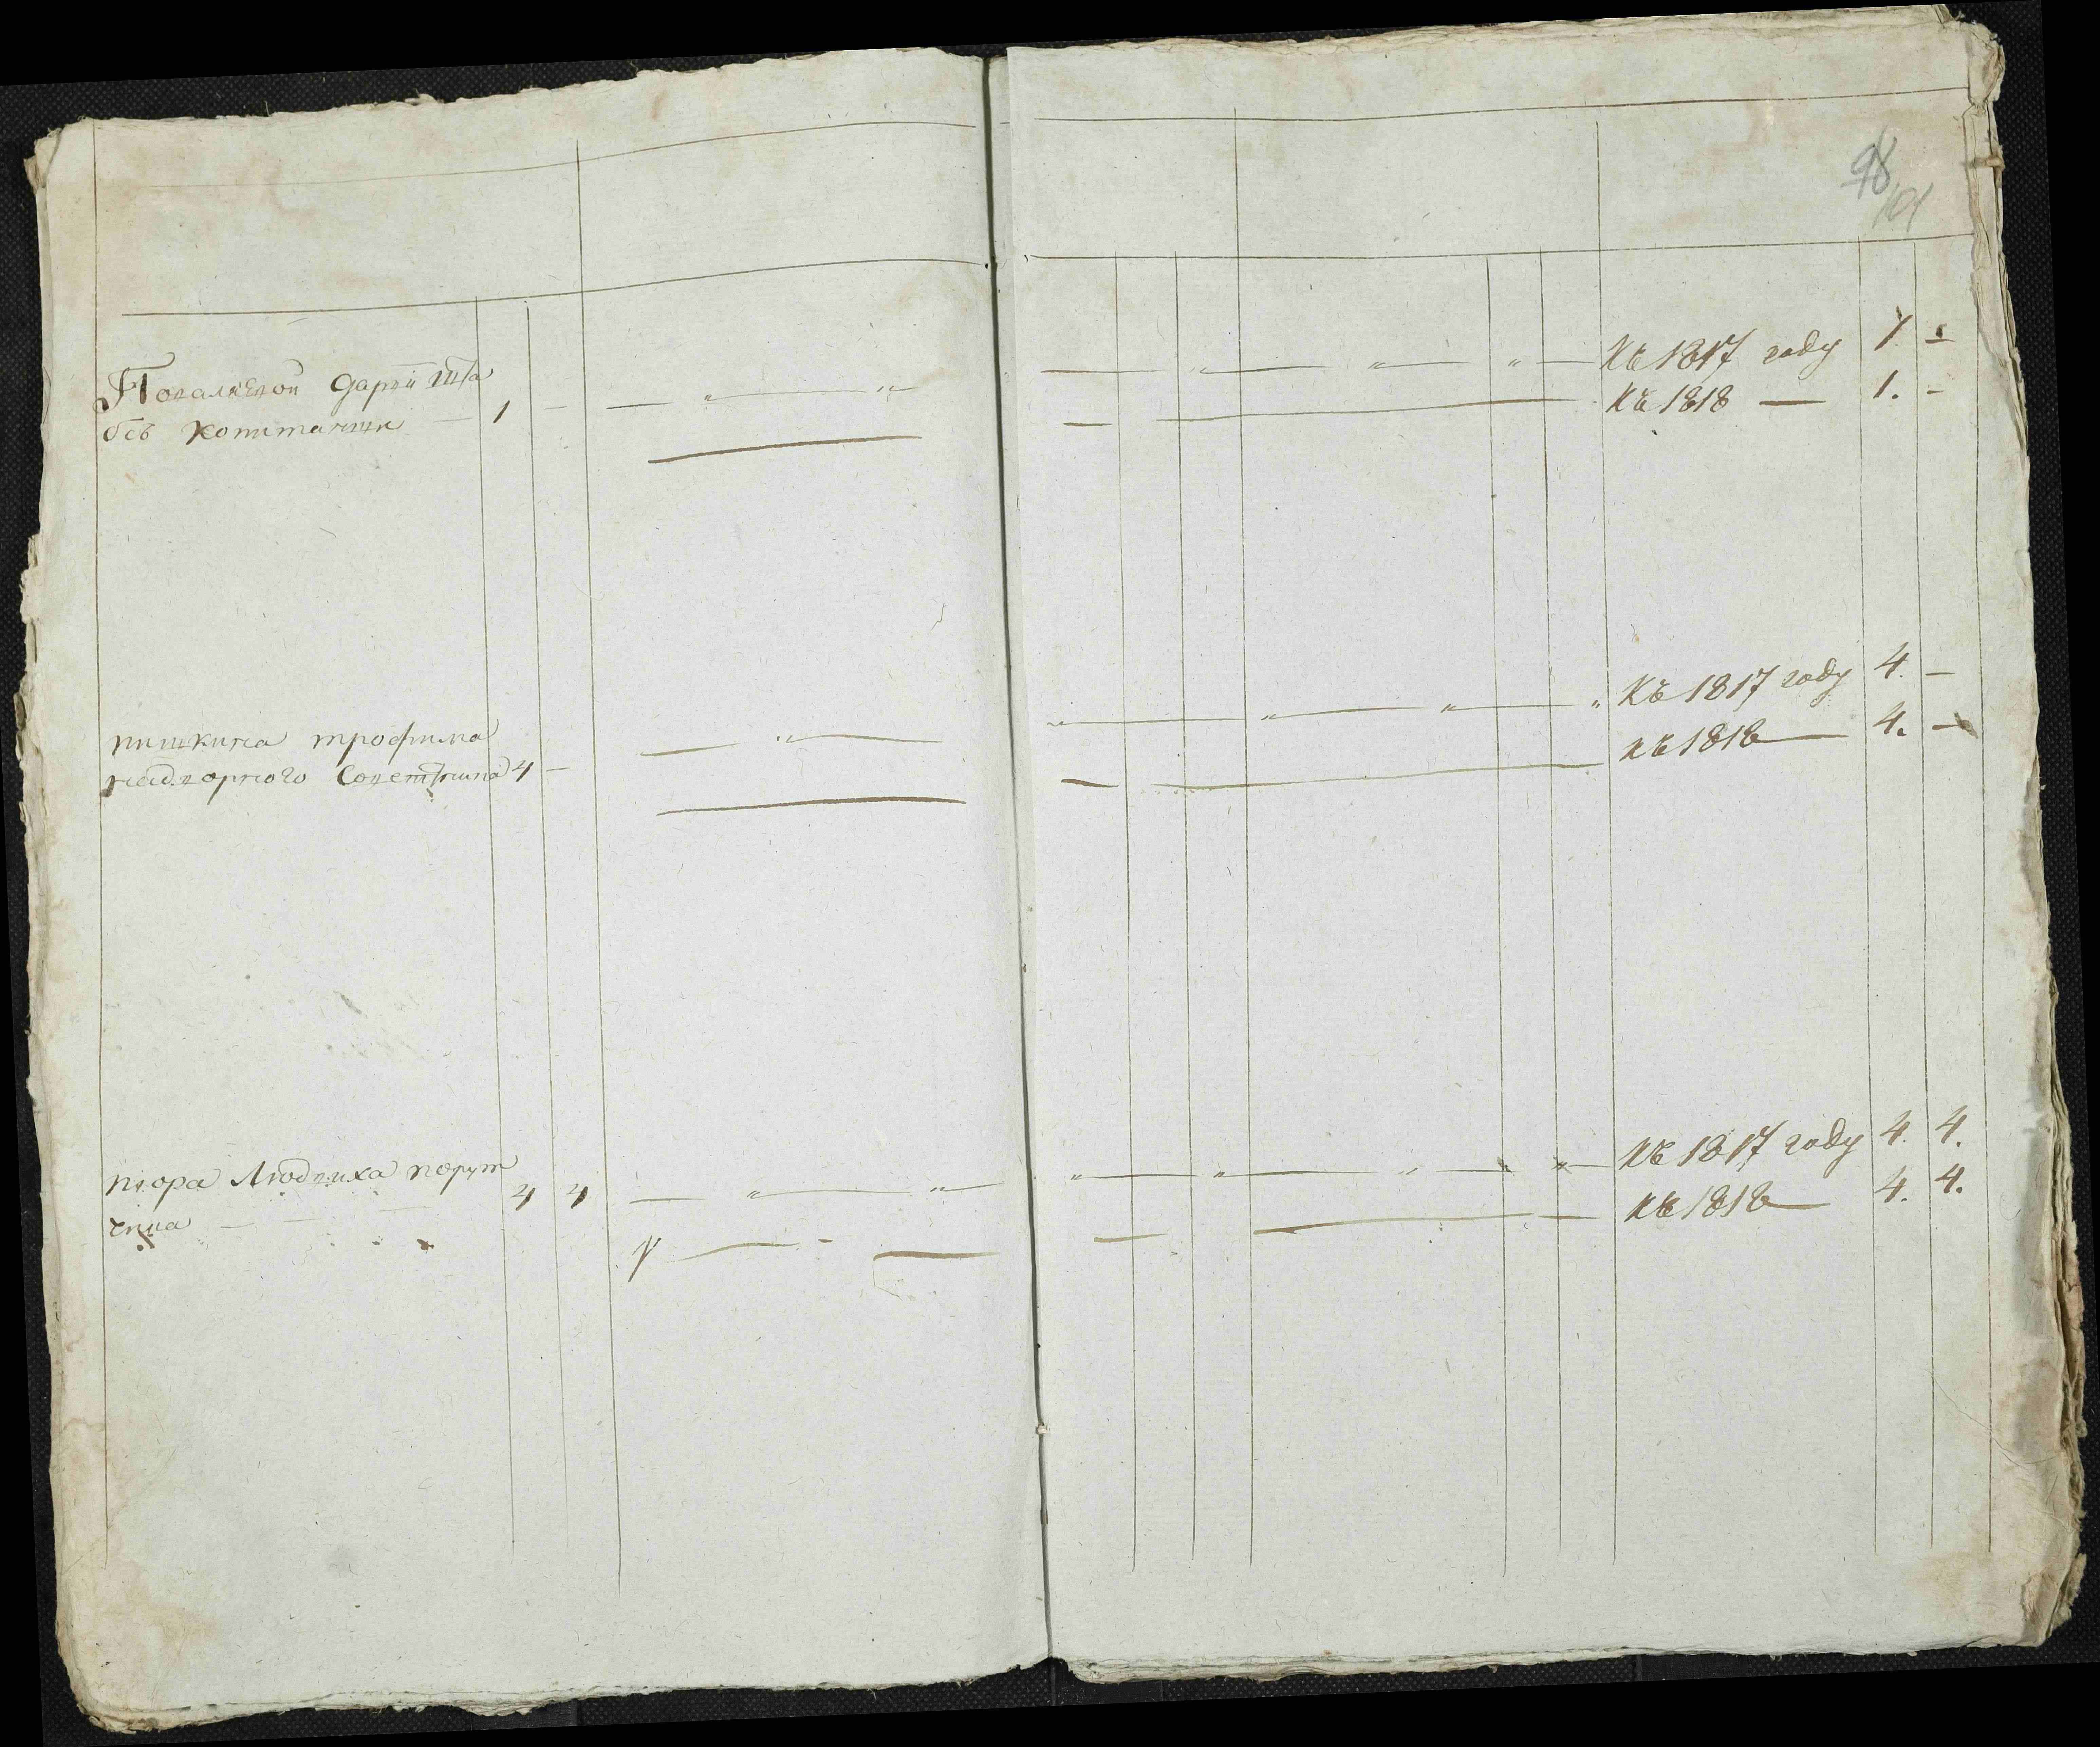 98
101
Повалѣевой Дарьи Шта
бсъ Копитанши — 1 —
Къ 1817 году 1 —
Къ 1818 — 1. —
пишкина трофима
надворного Советника 4 —
Къ 1817 году 4. —
къ 1818 — 4. —
пюра Людвиха порут
чика — 4 4
Къ 1817 году 4. 4.
къ 1818 — 4. 4.